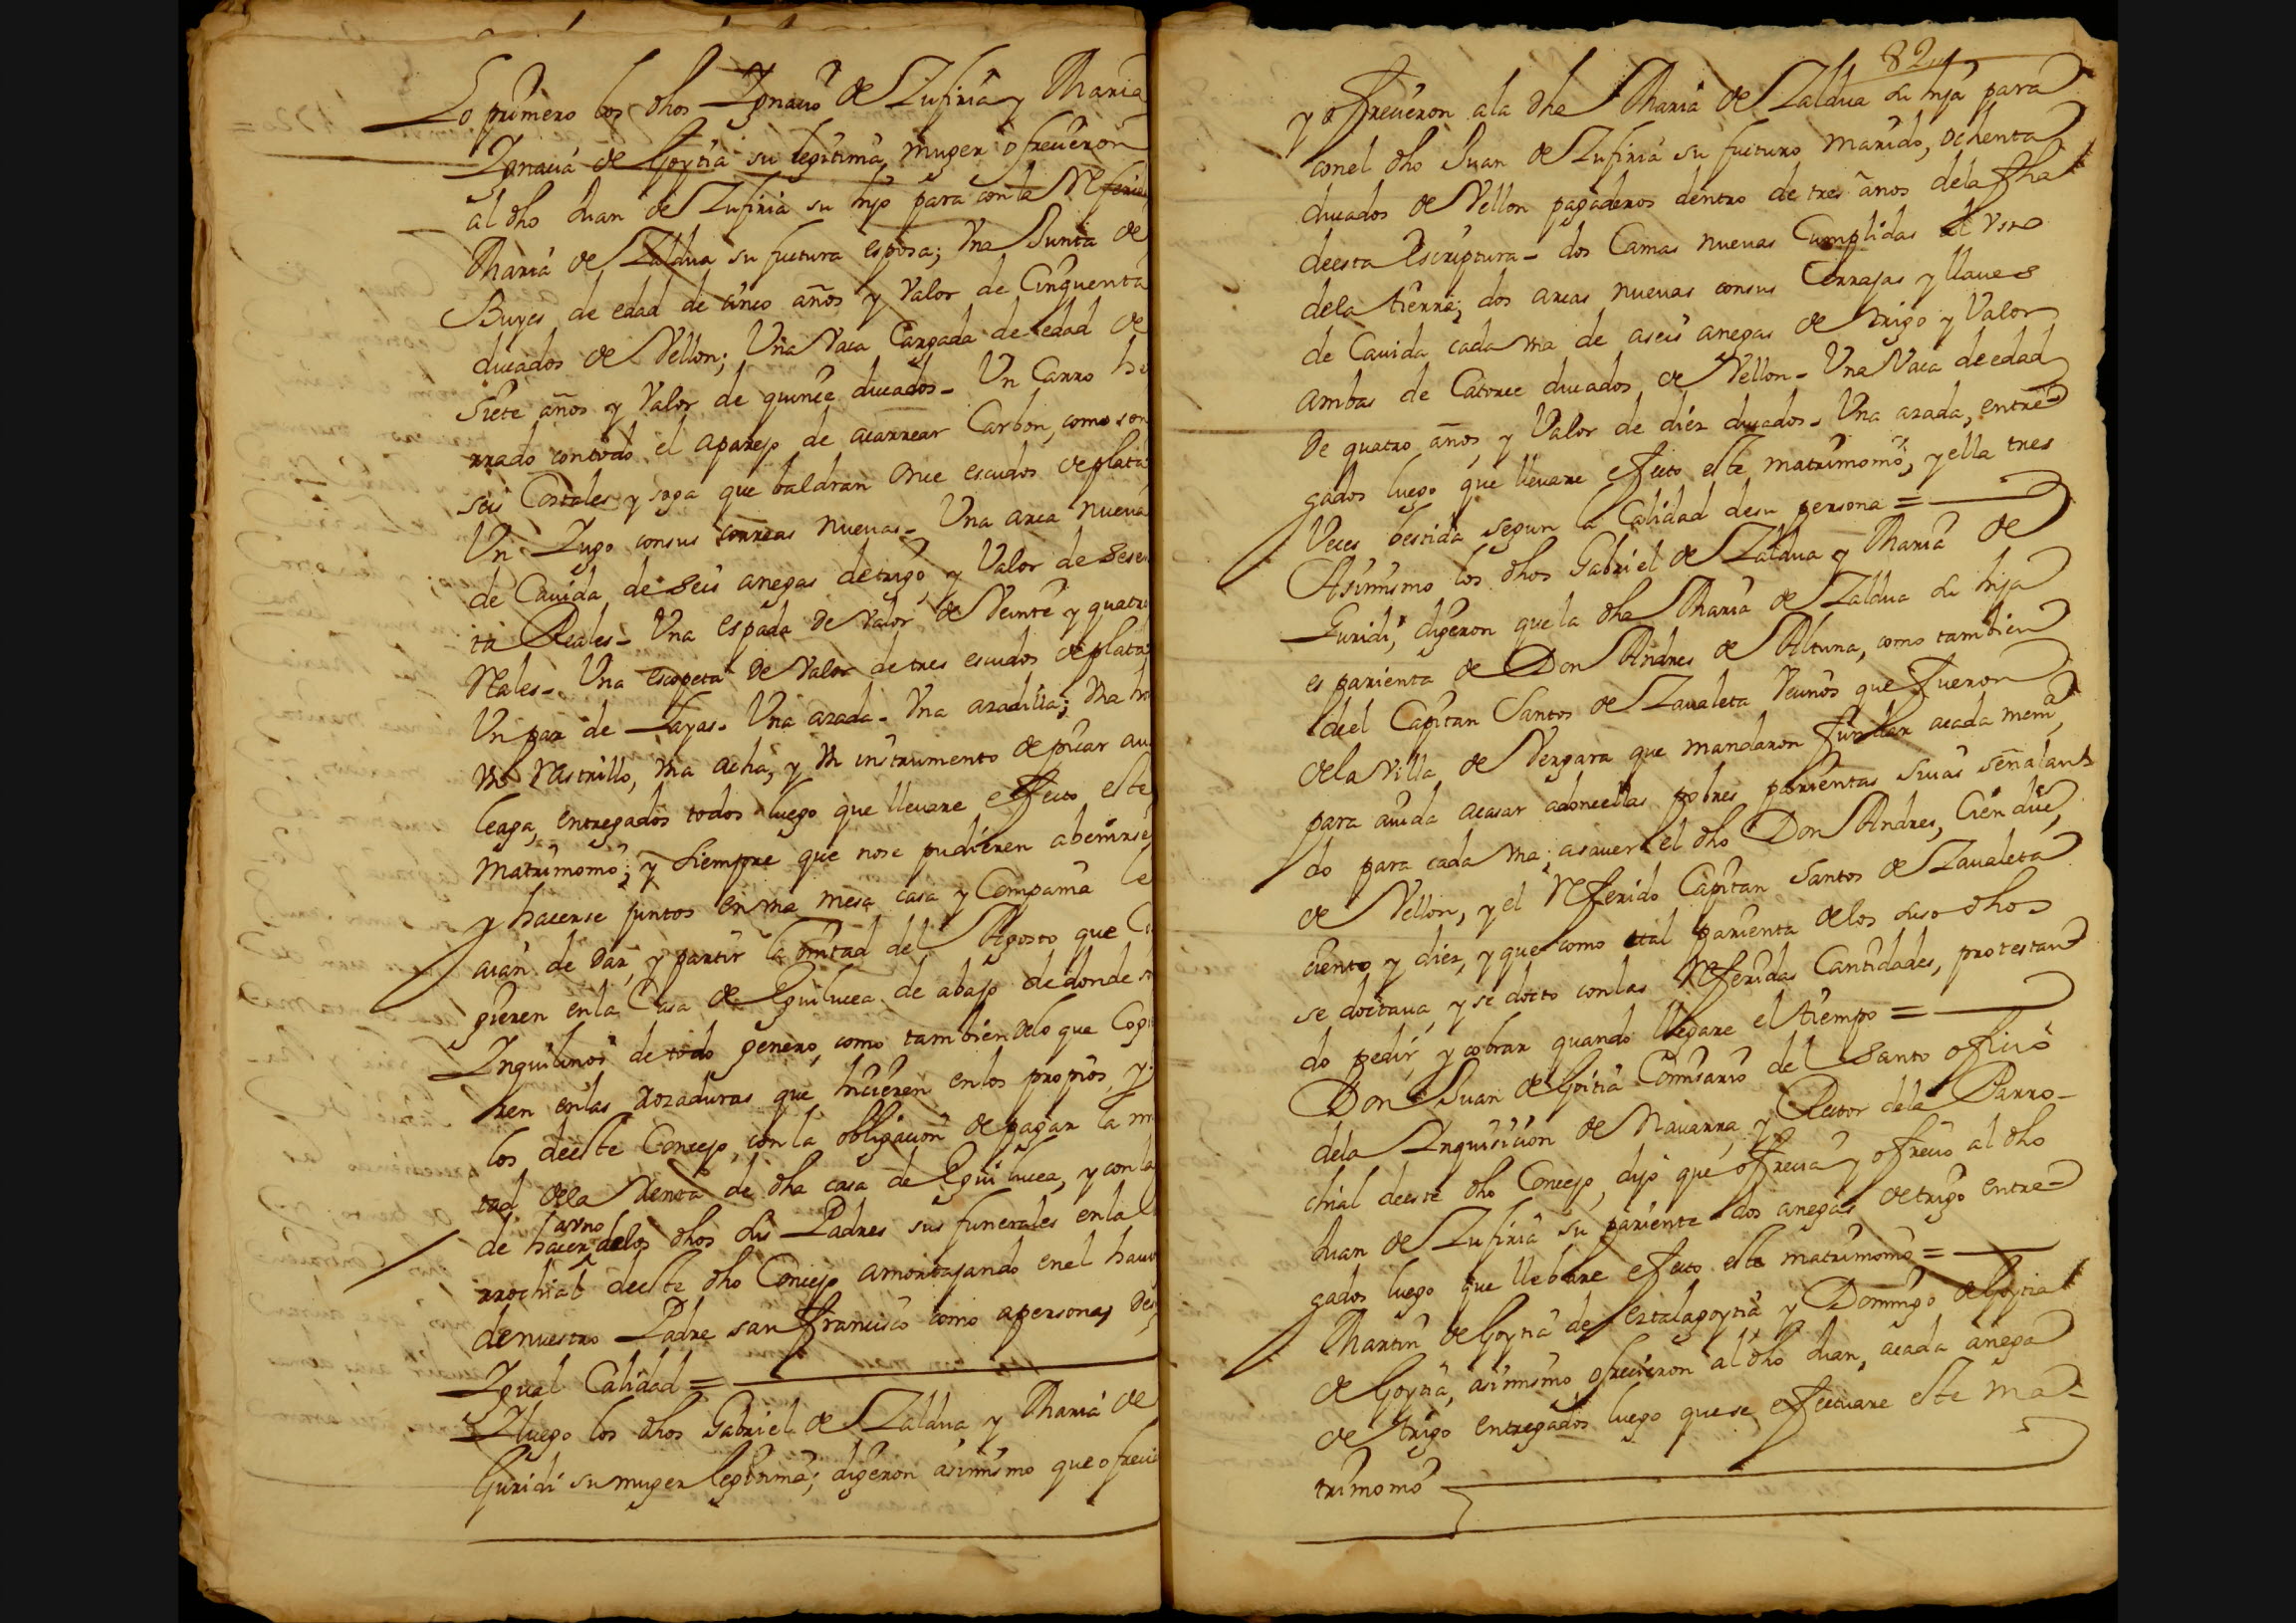 Lo primero los dhos Ignacio de Zufiria y Maria
Ignacia de Goytia su legitima muger ofrecieron
al dho Juan de Zufiria su hijo para con la Referida
Maria de Zaldua su futura esposa; Vna Junta de
Bueyes de edad de cinco años y Valor de Cinquenta
ducados de Vellon; Una Vaca Cargada de edad de
Siete años y Valor de quince ducados - Un Carro he
rrado contodo el aparejo de acarrear Carbon, como son
seis Costales y soga que baldran Once escudos deplata
Un Zugo consus correas nuevas - Una arca nueva
de Cauida de seis anegas detrigo, y Valor de sesen
ta Reales - Una espada de Valor de Veinte y quatro
Reales - Una escopeta de Valor de tres escudos deplata
Un par de Layas - Una azada - Vna azadilla; Vna
Vn Rastrillo, Vna acha, y Vn instrumento de picar
leaga, entregados todos luego que lleuare efecto este
matrimonio; y siempre que nose pudieren abenirse,
y hacerse juntos en vna mesa casa y Compañia le
aian de dar, y partir la mitad del Agosto que
gieren enla Casa de Eguilucea de abajo dedonde
Inquilinos de todo genero, como tambien delo que Cogi
ren enlas rozaduras que hicieren enlos propios, y
los deeste Concejo, con la obligacion de pagar la mi
tad dela Renta de dha casa de Eguilucea, y con la
de hacer aVno delos dhos sus Padres sus funerales enla
rrochial deeste dho Concejo amortajando enel
denuestro Padre san francisco como apersonas de
Igual Calidad =
Iluego los dhos Gabriel de Zaldua y Maria de
Guridi su muger legitima; digeron asimismo que ofreci
82
y ofrecieron ala dha Maria de Zaldua su hija para
conel dho Juan de Zufiria su futuro marido, ochenta
ducados de Vellon pagaderos dentro de tres años dela fha
deesta escriptura - dos Camas nuevas Cumplidas al Vso
dela tierra; dos arcas nuevas consus Cerrajas y llaues
de Cauida cada vna de aseis anegas de trigo y Valor
ambas de Catorce ducados de Vellon - Una Vaca deedad
de quatro años, y Valor de diez ducados - Una azada, entre
gados luego que lleuare efecto este matrimonio, yella tres
Veces bestida segun la Calidad desu persona =
Asimismo los dhos Gabriel de Zaldua y Maria de
Guridi, digeron que la dha Maria de Zaldua su hija
es parienta de Don Andres de Altuna, como tambien
deel Capitan Santos de Zaualeta Vecinos que fueron
dela Villa de Vergara que mandaron fundar acada mema,
para aiuda acasar adoncellas pobres parientas suias señalan
do para cada vna; asauer el dho Don Andres, Cien duc,
de Vellon, y el Referido Capitan Santos de Zaualeta
ciento y diez, y que como tal parienta delos suso dhos
se doctaua, y se docto conlas Referidas Cantidades, protestan
do pedir, y cobrar quando llegare el tiempo =
Don Juan de Goitia Comisario del santo oficio
dela Inquisicion de Nauarra, y Rector dela Parro-
chial deeste dho Concejo, dijo que ofrecia y ofrecio al dho
Juan de Zufiria su pariente dos anegas detrigo entre
gados luego que llebare efecto este matrimonio =
Martin de Goytia de ertalagoytia y Domingo de Goytia
de Goytia, asimismo ofrecieron al dho Juan, acada anega
de trigo entregados luego quese efectuare este ma-
trimonio